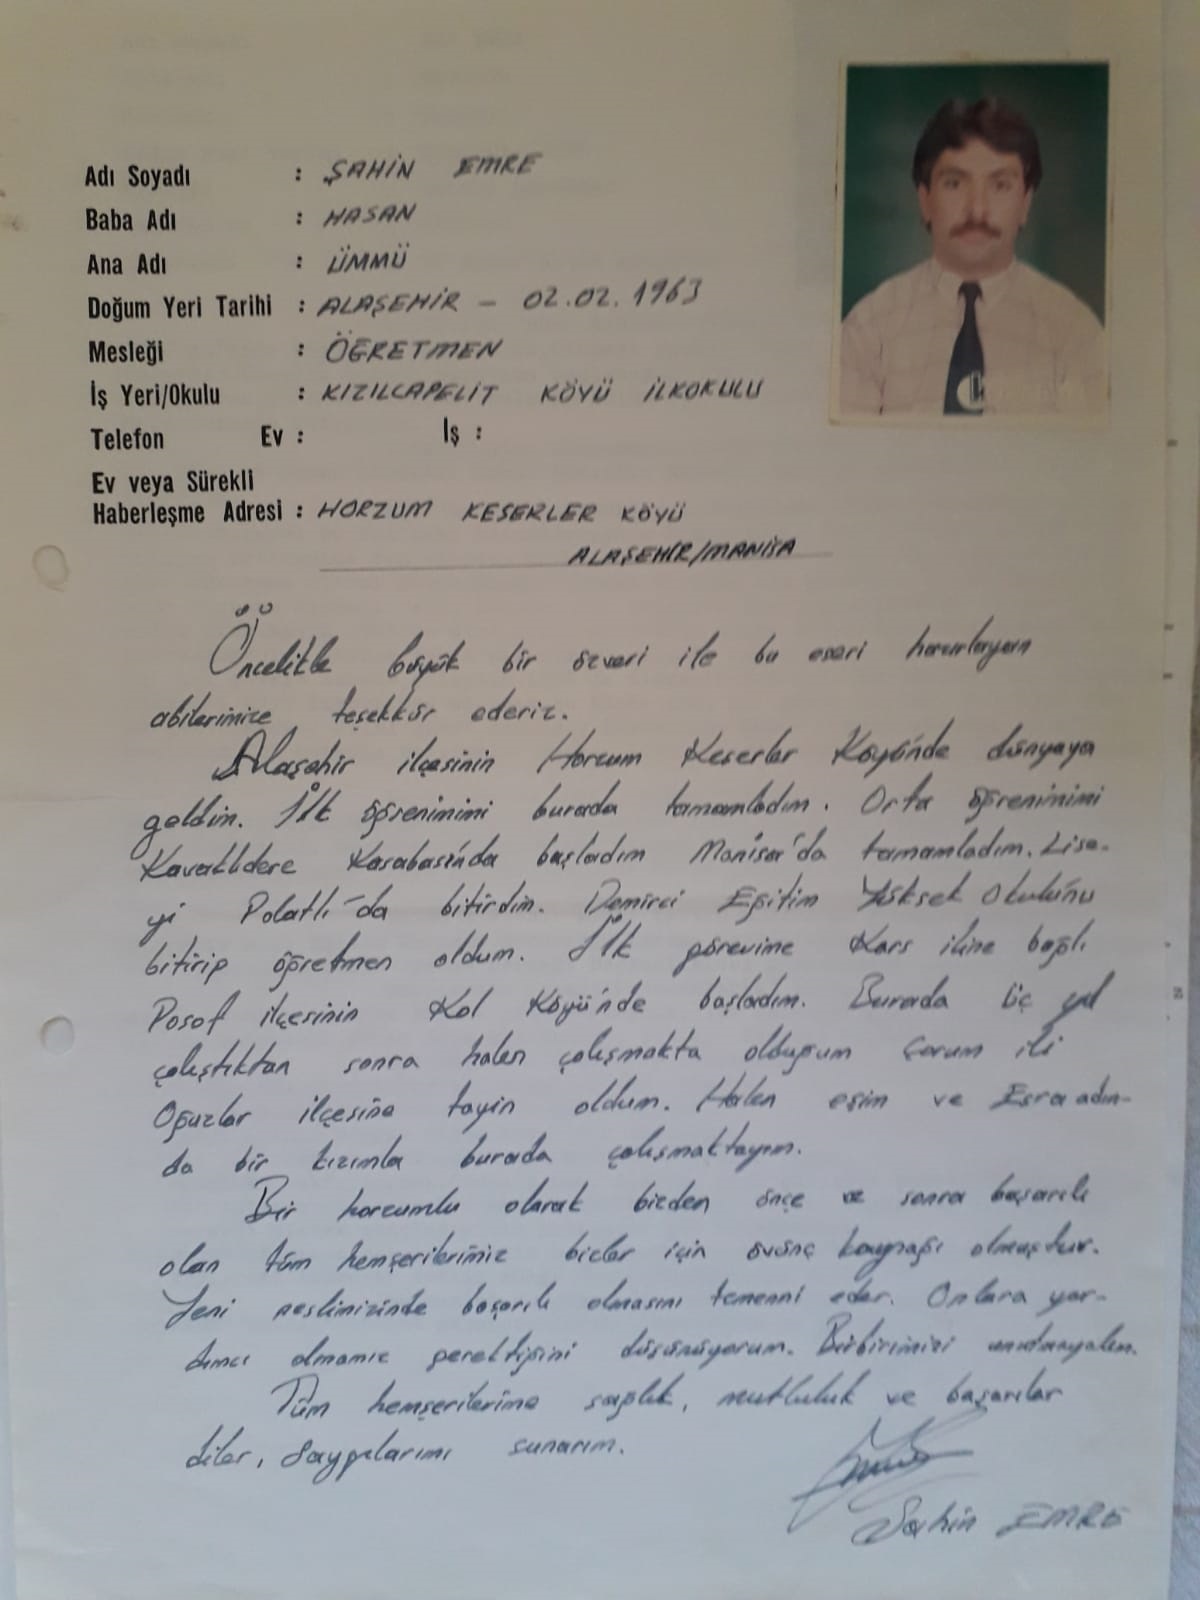 Adı Soyadı : ŞAHİN EMRE
Baba Adı : HASAN
Ana Adı : ÜMMÜ
Doğum Yeri Tarihi : ALAŞEHİR - 02.02.1963
Mesleği : ÖĞRETMEN
İş Yeri/Okulu : KIZILCAPELİT KÖYÜ İLKOKULU
Telefon Ev : İş :
Ev veya Sürekli
Haberleşme Adresi : HORZUM KESERLER KÖYÜ
ALAŞEHİR/MANİSA
Öncelikle büyük bir özveri ile bu eseri hazırlayan
abilerimize teşekkür ederiz.
Alaşehir ilçesinin Horzum Keserler Köyü'nde dünyaya
geldim. İlk öğrenimimi burada tamamladım. Orta öğrenimimi
Kavaklıdere Kasabası'nda başladım Manisa'da tamamladım. Lise-
yi Polatlı'da bitirdim. Demirci Eğitim Yüksek Okulu'nu
bitirip öğretmen oldum. İlk görevime Kars iline bağlı
Posof ilçesinin Kol Köyü'nde başladım. Burada üç yıl
çalıştıktan sonra halen çalışmakta olduğum Çorum ili
Oğuzlar ilçesine tayin oldum. Halen eşim ve Esra adın-
da bir kızımla burada çalışmaktayım.
Bir horzumlu olarak bizden önce ve sonra başarılı
olan tüm hemşerilerimiz bizler için övünç kaynağı olmuştur.
Yeni neslimizinde başarılı olmasını temenni eder. Onlara yar-
dımcı olmamız gerektiğini düşünüyorum. Birbirimizi unutmayalım.
Tüm hemşerilerime sağlık, mutluluk ve başarılar
diler, saygılarımı sunarım.
Şahin EMRE